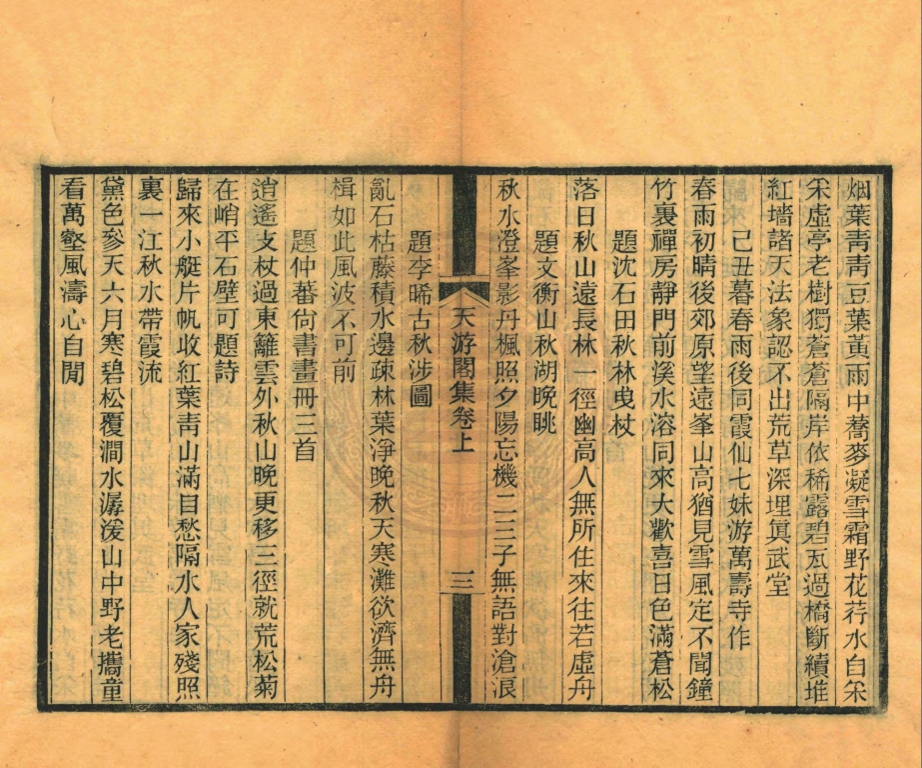 烟葉靑靑豆葉黃雨中蕎麥凝雪霜野花荇水自采
采虛亭老樹獨蒼蒼隔岸依稀露碧瓦過橋斷續堆
紅墻諸天法象認不出荒草深埋眞武堂
己丑暮春雨後同霞仙七妹游萬壽寺作
春雨初晴後郊原望遠峯山高猶見雪風定不聞鐘
竹裏禪房靜門前溪水溶同來大歡喜日色滿蒼松
題沈石田秋林曳杖
落日秋山遠長林一徑幽高人無所住來往若虛舟
題文衡山秋湖晚眺
秋水澄峯影丹楓照夕陽忘機二三子無語對滄浪
天游閣集卷上
三
題李晞古秋涉圖
亂石枯藤積水邊疎林葉淨晚秋天寒灘欲濟無舟
楫如此風波不可前
題仲蕃尙書畫冊三首
逍遙支杖過東籬雲外秋山晚更移三徑就荒松菊
在峭平石壁可題詩
歸來小艇片帆收紅葉靑山滿目愁隔水人家殘照
裏一江秋水帶霞流
黛色參天六月寒碧松覆澗水潺湲山中野老攜童
看萬壑風濤心自閒